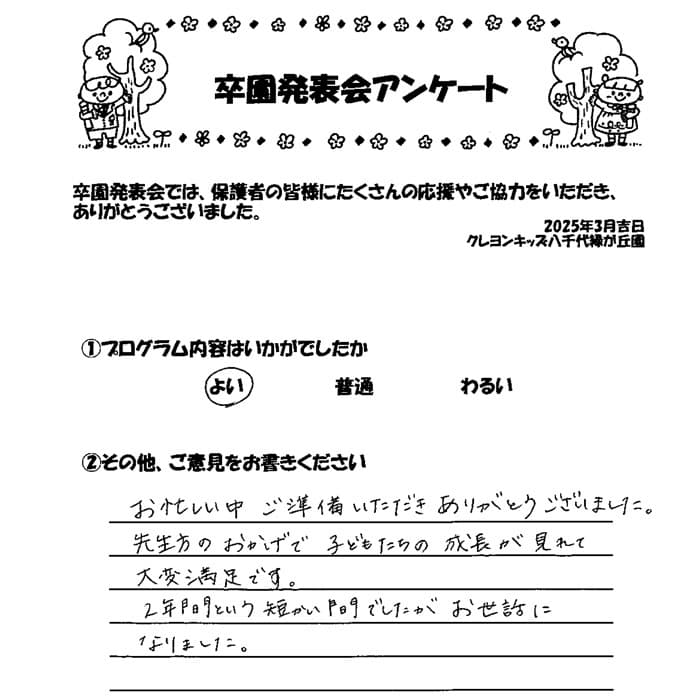 卒園発表会アンケート
卒園発表会では、保護者の皆様にたくさんの応援やご協力をいただき、
ありがとうございました。
2025年3月吉日
クレヨンキッズ八千代緑が丘園
①プログラム内容はいかがでしたか
よい 普通 わるい
②その他、ご意見をお書きください
お忙しい中 ご準備いただき ありがとうございました。
先生方の おかげで 子どもたちの 成長が 見れて
大変満足です。
2年間という 短かい間でしたが お世話に
なりました。